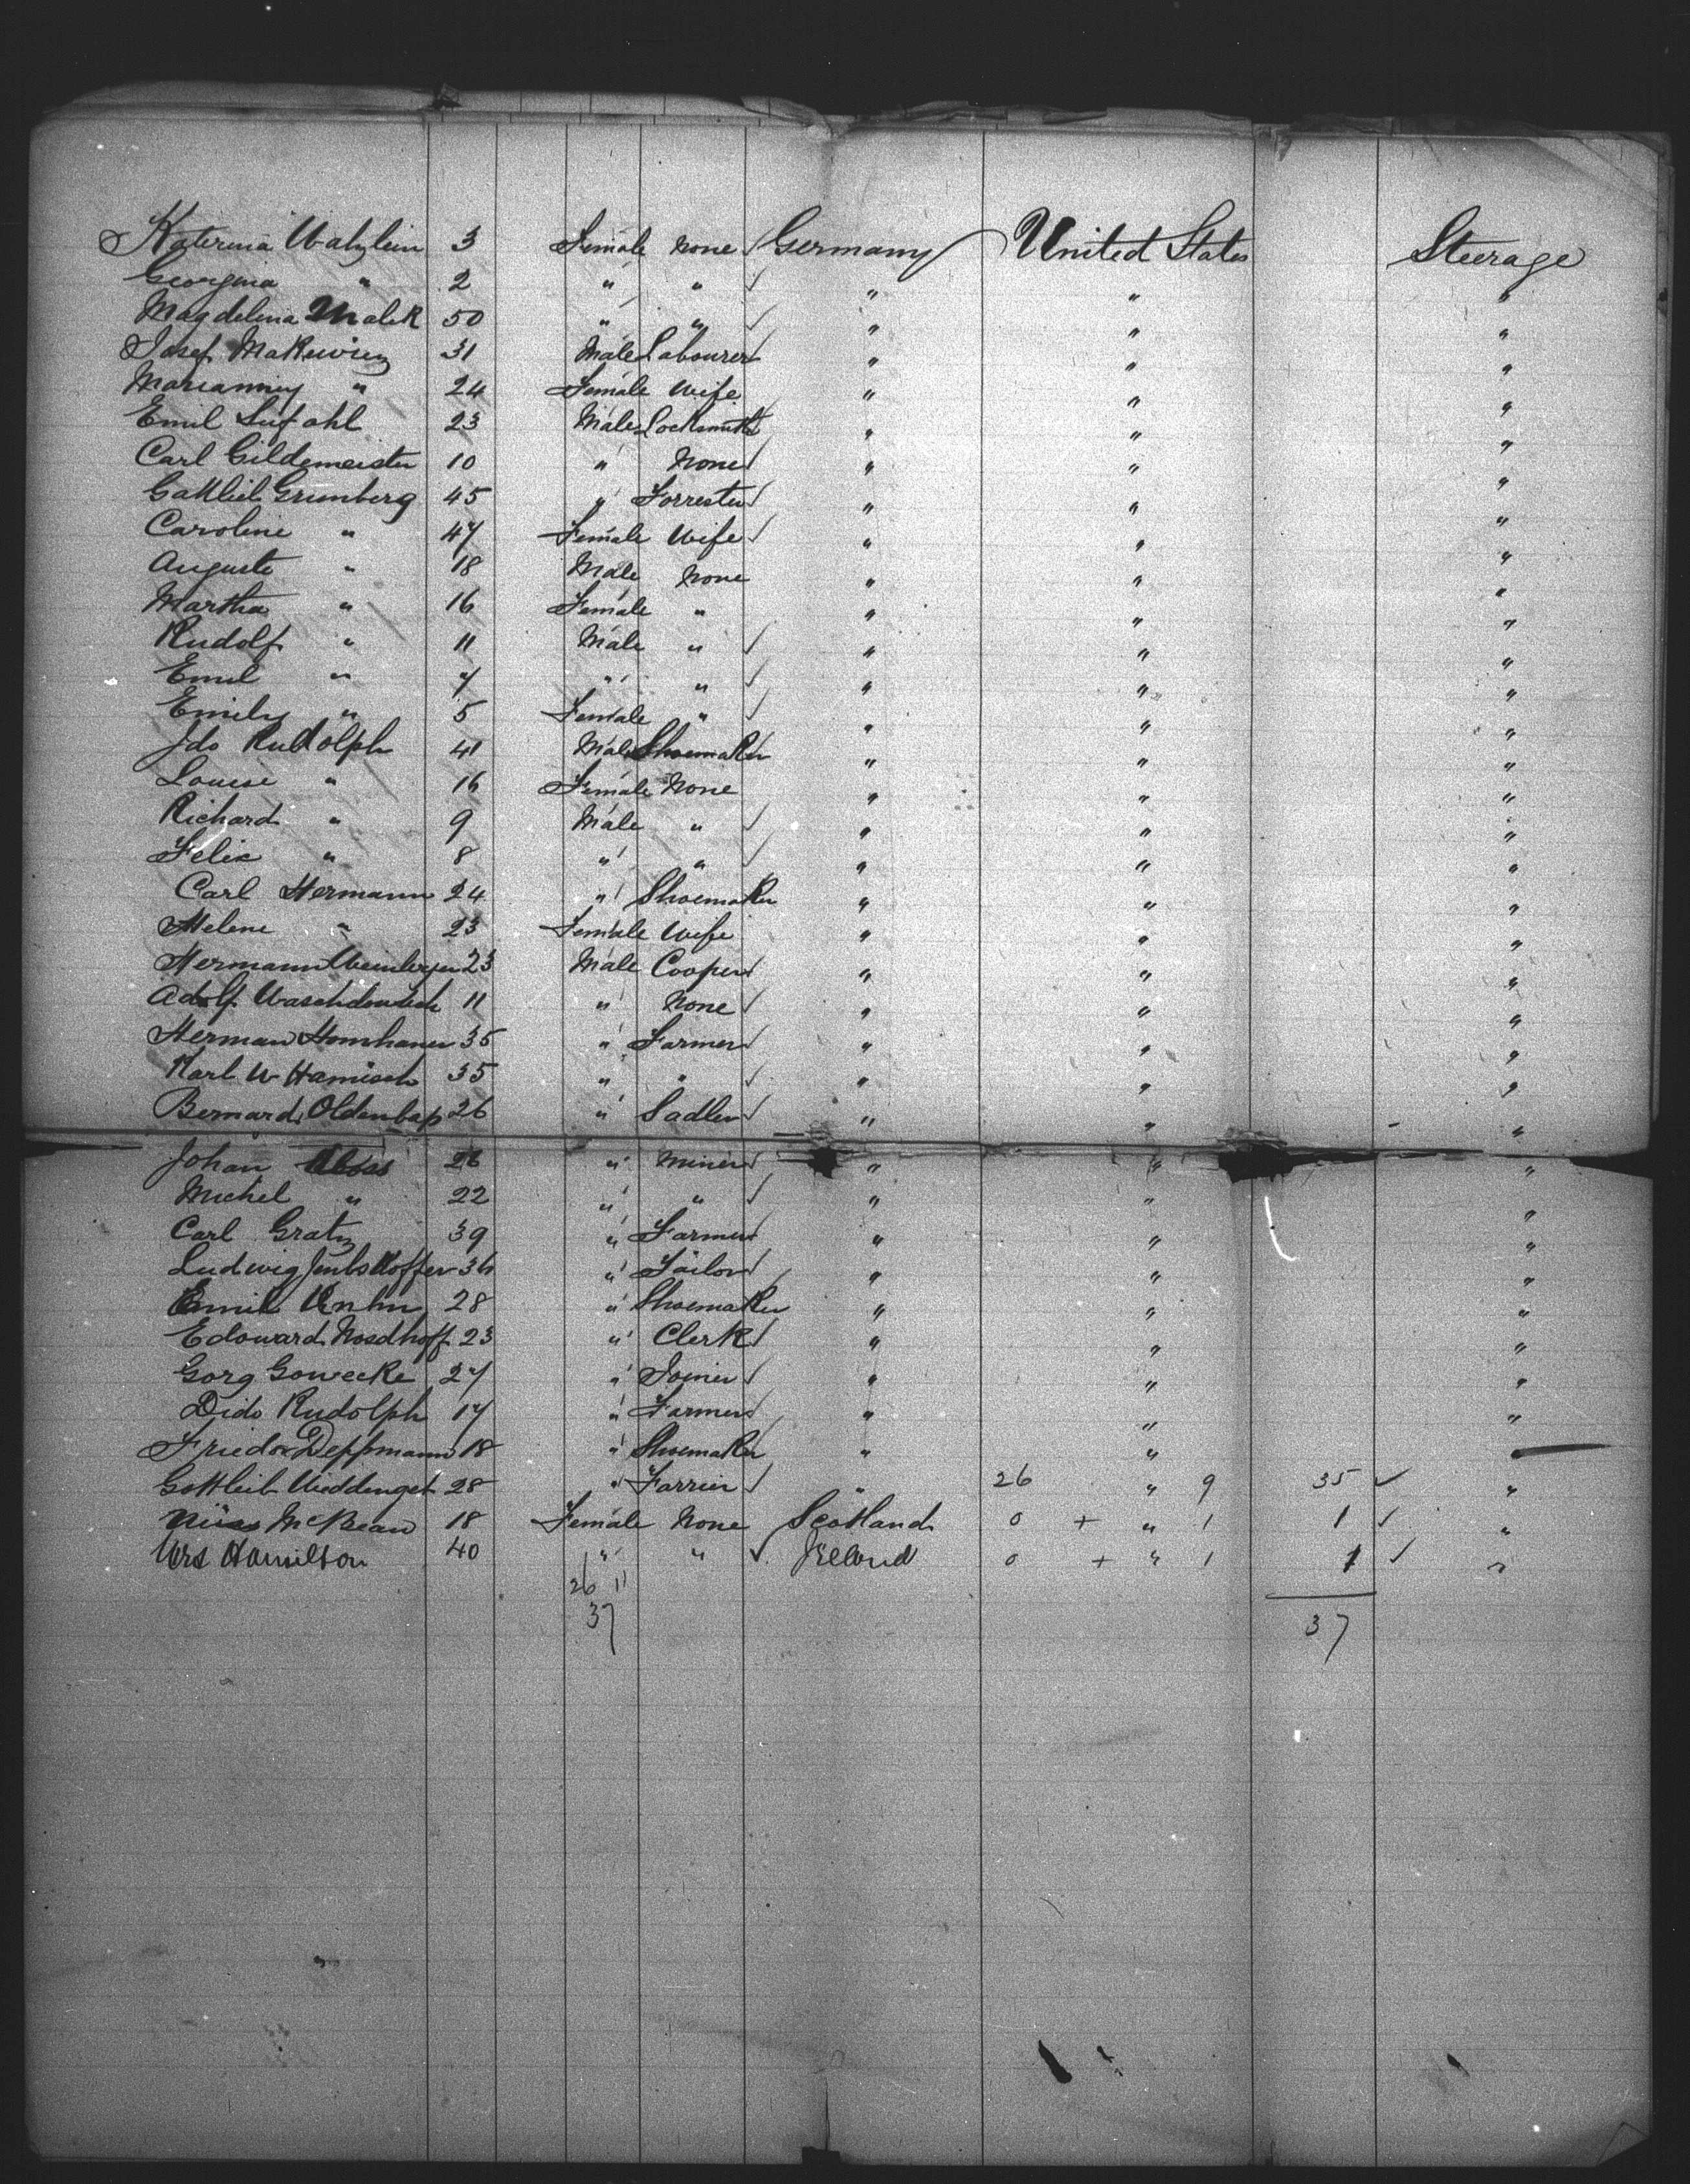 Katerina Watzlein 3 Female None Germany United States Steerage
Georgina " 2 " " " " "
Magdelena Malek 50 " " " " "
Josef Makewicz 31 Male Labourer " " "
Marianny " 24 Female Wife " " "
Emil 23 Male Locksmith " " "
Carl Gildemeister 10 " None " " "
Gottlieb Grunberg 45 " Forrester " " "
Caroline " 47 Female Wife " " "
Auguste " 18 Male None " " "
Martha " 16 Female " " " "
Rudolf " 11 Male " " " "
Emil " 7 " " " " "
Emily " 5 Female " " " "
Ido Rudolph 41 Male Shoemaker " " "
Louise " 16 Female None " " "
Richard " 9 Male " " " "
Felix " 8 " " " " "
Carl Hermann 24 " Shoemaker " " "
Helene " 23 Female Wife " " "
Hermann 23 Male Cooper " " "
Adolf 11 " None " " "
Herman 35 " Farmer " " "
Karl W Hamisch 35 " " " " "
Bernard 26 " Sadler " " "
Johan 26 " Miner " " "
Michel " 22 " " " " "
Carl Gratz 39 " Farmer " " "
Ludwig 36 " Tailor " " "
Emil 28 " Shoemaker " " "
Edouard Nosdhoff 23 " Clerk " " "
Gorg Gowecke 27 " Joiner " " "
Dido Rudolph 17 " Farmer " " "
Friedr Deppmann 18 " Shoemaker " " "
Gottleib 28 " Farrier " 26 " 9 35 ✓ "
Miss McBean 18 Female None Scotland 0 + " 1 1 ✓ "
Mrs Hamilton 40 " " ✓ Ireland 0 + " 1 1 ✓ "
26 11
37 37